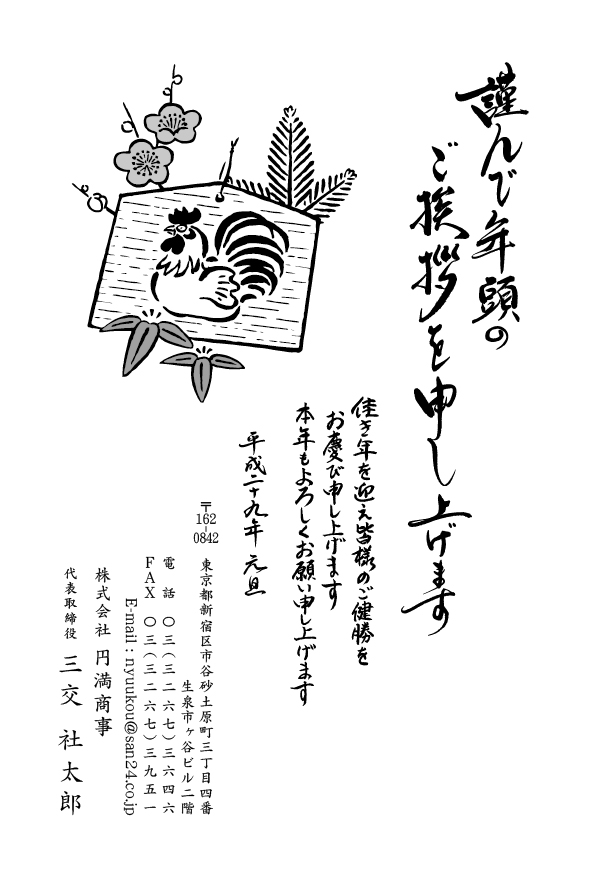 謹んで年頭の
ご挨拶を申し上げます
佳き年を迎え皆様のご健勝を
お慶び申し上げます
本年もよろしくお願い申し上げます
平成二十九年 元旦
〒162-0842
東京都新宿区市谷砂土原町三丁目四番
生泉市ヶ谷ビル二階
電話 〇三(三二六七)三六四六
FAX 〇三(三二六七)三九五一
E-mail:nyuukou@san24.co.jp
株式会社 円満商事
代表取締役 三交 社太郎